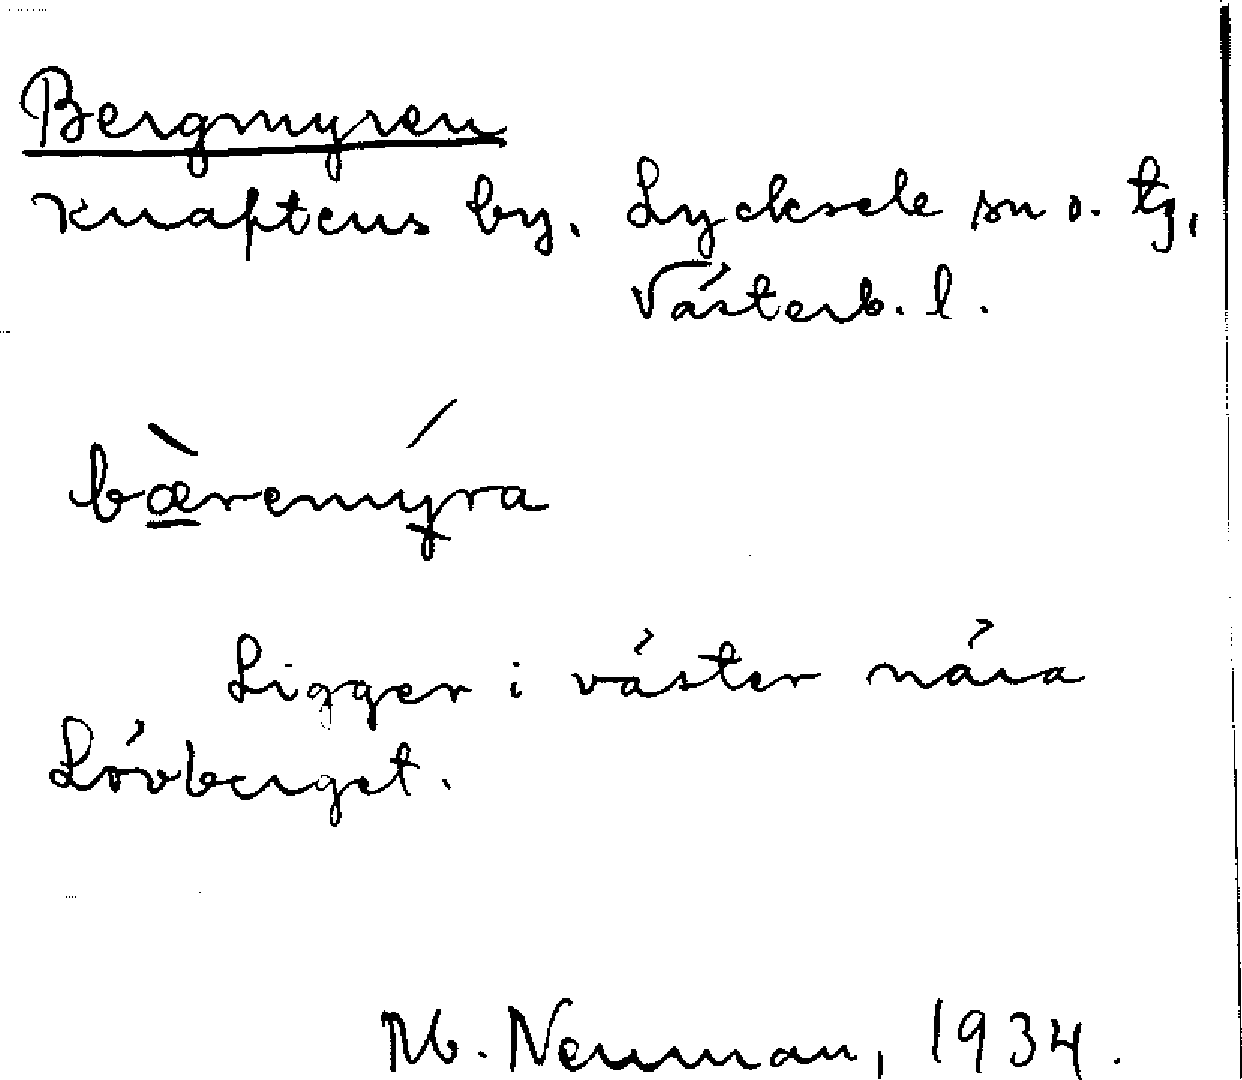 Bergmyren
Knaftens by. Lycksele sn o. tg,
Västerb. l.
bæ̀remýra
Ligger i väster nära
Lövberget.
M. Neuman, 1934.